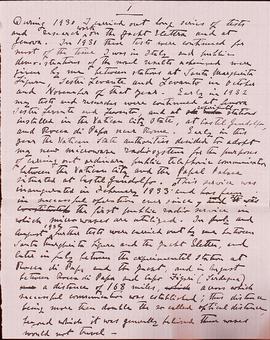 1
During 1930 I carried out long series of tests
and research, on the yacht Elettra and at
Genova. In 1931 these tests were continued for
most of the time I was in Italy and public
demonstrations of the good results obtained were
given by me between stations at Santa Margherita
Ligure, Sestri Levante and Levanto in October
and November of that year. Early in 1932
my tests and researches were continued at Genova
Sestri Levante and and at
installed in the Vatican State, at Castel Gandolfo
and Rocca di Papa near Rome. Early in this
year the Vatican State authorities decided to adopt
my new microwave radio system for the purpose
of carrying out ordinary public telephonic communication
between the Vatican City and the Papal Palace
situated at Castel Gandolfo. This service was
inaugurated in February 1933 and has been
in successful operation ever since,
the first public radio service in
which micro waves are utilized. In
1932 further tests were carried out by me between
Santa Margherita Ligure and the yacht Elettra, and
later in July between the experimental station at
Rocca di Papa and the yacht, and in August
between Rocca di Papa and Capo Figari (Sardegna)
a distance of 168 miles, across which
successful communication was established; this distance
being more than double the so called optical distance
beyond which it was generally believed these waves
would not travel –